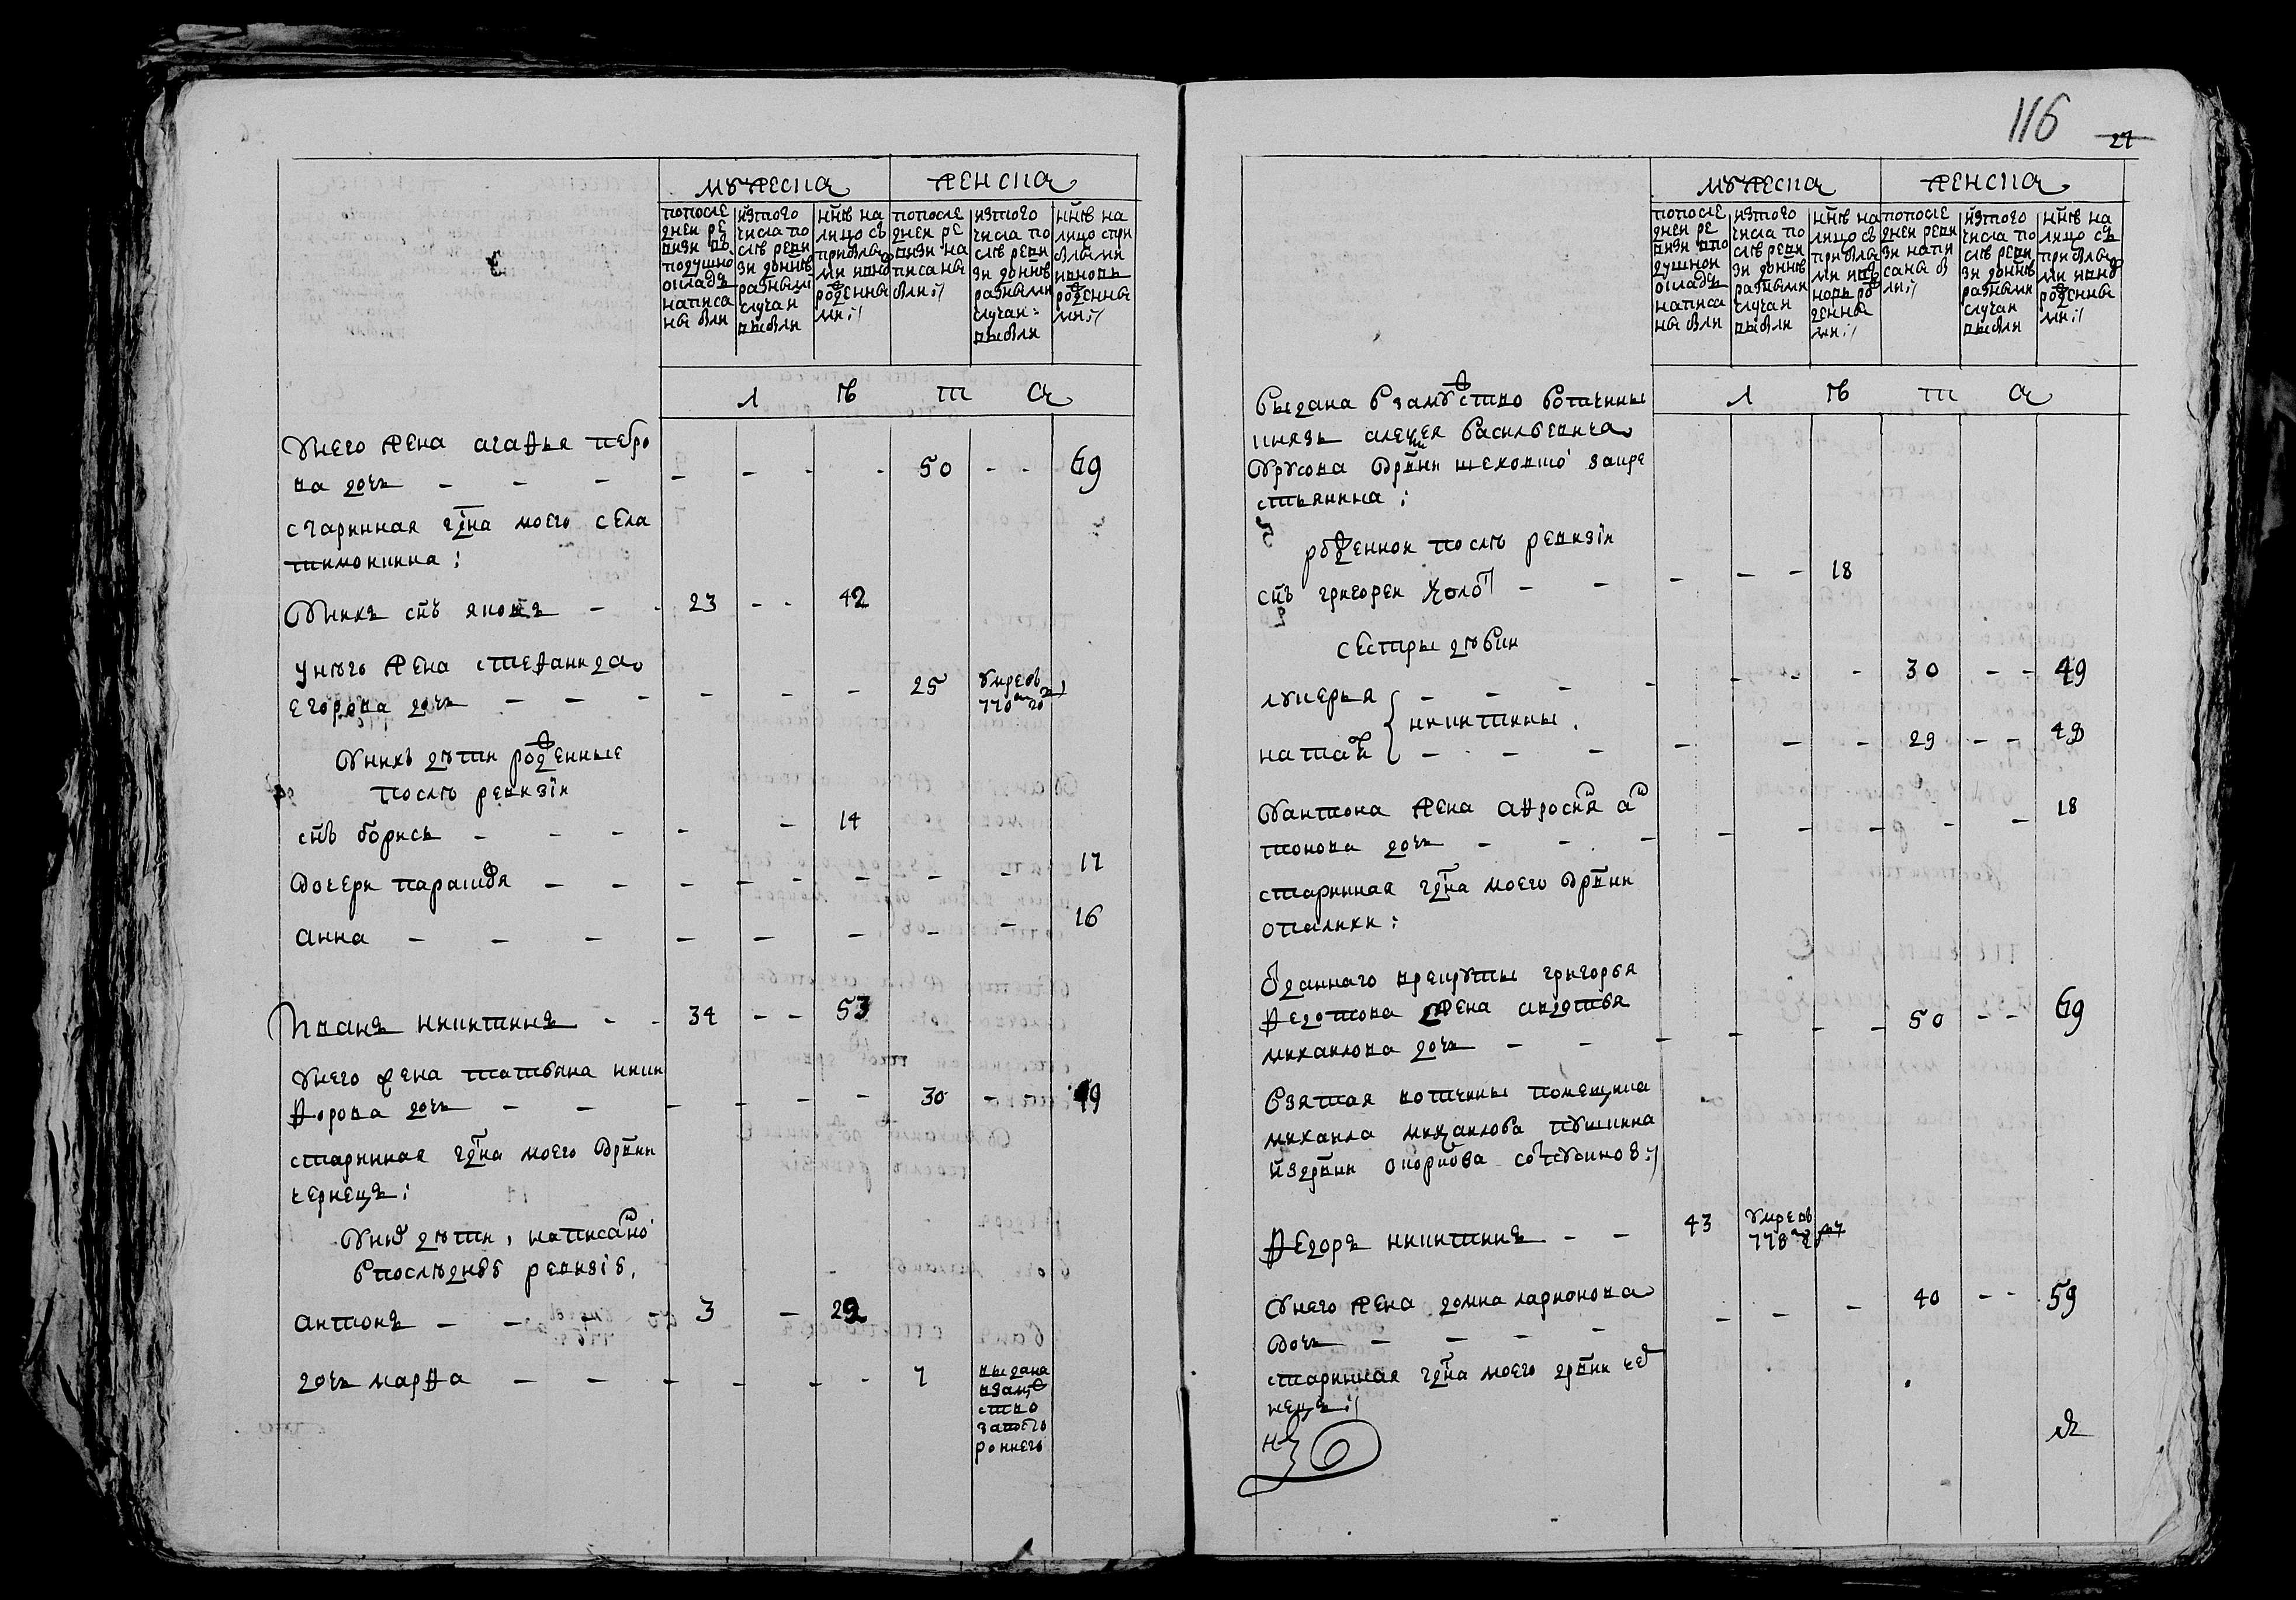 116
27
мужеска
женска
попосле
днеи ре
визи въ
подушно
окладъ
написа
ны были
изтого
числа по
слѣ реви
зи доннѣ
разными
случаи
выбыли
ннѣ на
лицо съ
прибылы
ми ивно
рожденны
ми:/
попосле
днеи ре
визи на
писаны
были:/
изтого
числа по
слѣ реви
зи доннѣ
разными
случаи:
выбыли
ннѣ на
лицо спри
былыми
ивновь
рожденны
ми:/
л ѣ т а
Унего жена агафья петро
ва дочь - - - - - - - 50 - - 69
старинная чдна моего села
тимонкина:
Уникъ снъ яковъ - - 23 - - 42
унѣго жена стефанида
егорова дочь - - - - - - 25 умре въ 770м году
Унихъ дѣти рожденные
послѣ ревизiи
снъ борисъ - - - - - 14
дочери парасковя - - - - - - - - 17
анна - - - - - - - - 16
Иванъ никитинъ - - 34 - - 53
Унего жена татьяна ники
форова дочь - - - - - - 30 - - 49
старинная чдна моего дрвни
чернецъ:
Уних дѣти, написанно
впослѣдней ревизiи,
антонъ - - - 3 - 22
дочь марфа - - - - - - 7 выдана
взаму
ство
запосто
роннего
мужеска
женска
попосле
днеи ре
визи впо
душнои
окладъ
написа
ны были
изтого
числа по
слѣ реви
зи доннѣ
разными
случаи
выбыли
ннѣ на
лицо съ
прибылы
ми ивъ
новь ро
жденны
ми:/
попосле
днеи реви
зи напи
саны б
ли:/
изтого
числа по
слѣ реви
зи доннѣ
разными
случаи
выбыли
ннѣ на
лицо съ
прибылы
ми ивно
рожденны
ми:/
л ѣ т а
выдана взамужство вотчины
князь алексея васильевича
Урусова дрвни закре
стьянина:
рожденнои послѣ ревизiи
снъ григореи холост - - - - - 18
сестры дѣвки
лукерья - - - - - - - 30 - - 49
никитины.
наталья - - - - - - 29 - - 48
Уантона жена афросиня ан
тонова дочь - - - - - - - - 18
старинная чдна моего дрвни
опалихи:
Отданнаго врекруты григорья
федотова жена авдотья
михаилова дочь - - - - - - - 50 - - 69
взятая вотчины помещика
михаила михаилова пушкина
издрвни
Федоръ никитинъ - - 43 умре въ 778м году
Унего жена домна ларионова
дочь - - - - - - - 40 - - 59
старинная чдна моего дрвни чер
нецъ:/